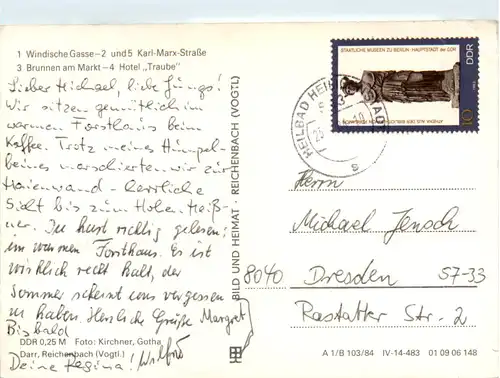 1 Windische Gasse – 2 und 5 Karl-Marx-Straße
3 Brunnen am Markt – 4 Hotel „Traube"
Lieber Michael, liebe Jungs!
Wir sitzen gemütlich im
warmen Forsthaus beim
Kaffee. Trotz meines Humpel-
beines marschierten wir zur
Marienwand - herrliche
Sicht bis zum Hohen Meiß-
ner. Du hast richtig gelesen:
im warmen Forsthaus. Es ist
wirklich recht kalt, der
Sommer scheint uns vergessen
zu haben. Herzliche Grüße Margret
Bis bald
DDR 0,25 M Foto: Kirchner, Gotha
Darr, Reichenbach (Vogtl.)
Deine Regina! Wilfrd
BILD UND HEIMAT REICHENBACH (VOGTL)
STAATLICHE MUSEEN ZU BERLIN · HAUPTSTADT der DDR
DDR
10
1983
HEILBAD HEILIGENSTADT
Herrn
Michael Jensch
8040 Dresden 57-33
Rastatter Str. 2
A 1/B 103/84 IV-14-483 01 09 06 148